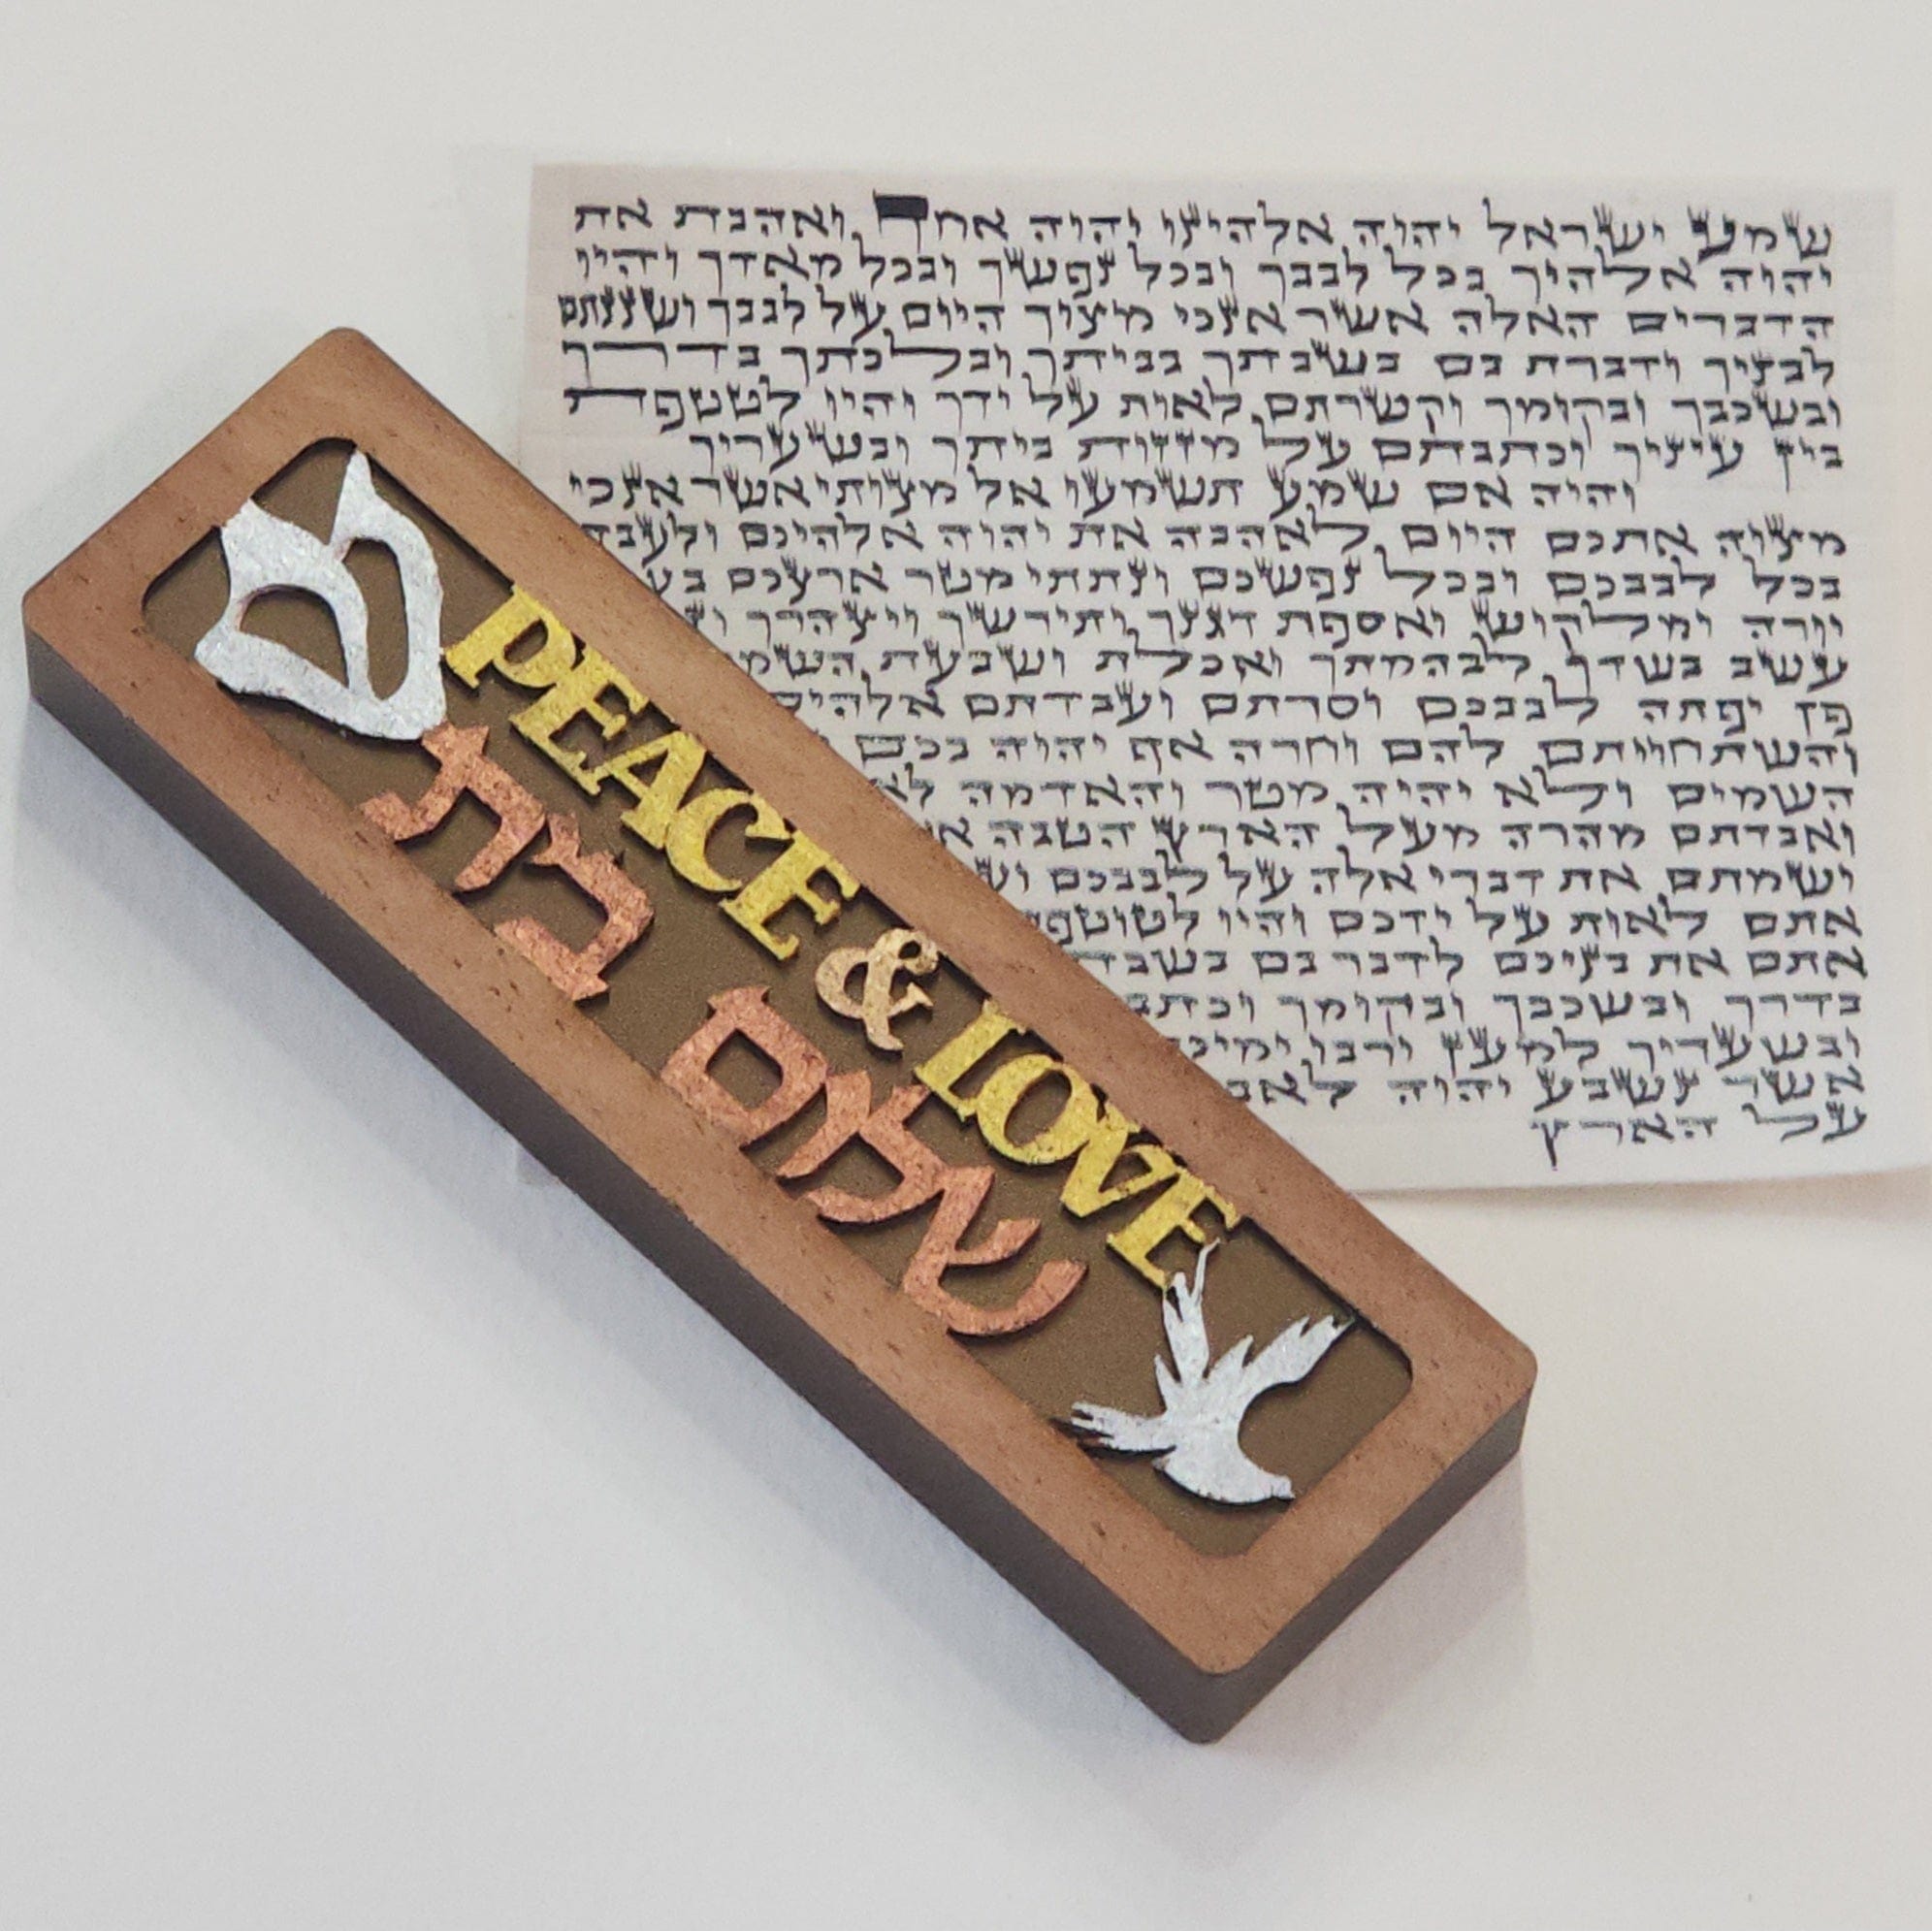 ש
PEACE & LOVE
שלום בית
שמע ישראל יהוה אלהינו יהוה אחד ואהבת את
יהוה אלהיך בכל לבבך ובכל נפשך ובכל מאדך והיו
הדברים האלה אשר אנכי מצוך היום על לבבך ושננתם
לבניך ודברת בם בשבתך בביתך ובלכתך בדרך
ובשכבך ובקומך וקשרתם לאות על ידך והיו לטטפת
בין עיניך וכתבתם על מזזות ביתך ובשעריך
והיה אם שמע תשמעו אל מצותי אשר אנכי
מצוה אתכם היום לאהבה את יהוה אלהיכם ולעבדו
בכל לבבכם ובכל נפשכם ונתתי מטר ארצכם
יורה ומלקוש ואספת דגנך ותירשך ויצהרך
עשב בשדך לבהמתך ואכלת ושבעת
פן יפתה לבבכם וסרתם ועבדתם
והשתחויתם להם וחרה אף יהוה בכם
השמים ולא יהיה מטר והאדמה לא
ואבדתם מהרה מעל הארץ הטבה
ושמתם את דברי אלה על לבבכם
אתם לאות על ידכם והיו
אתם את בניכם לדבר בם
בדרך ובשכבך ובקומך
ובשעריך למען ירבו
אשר נשבע יהוה
על הארץ